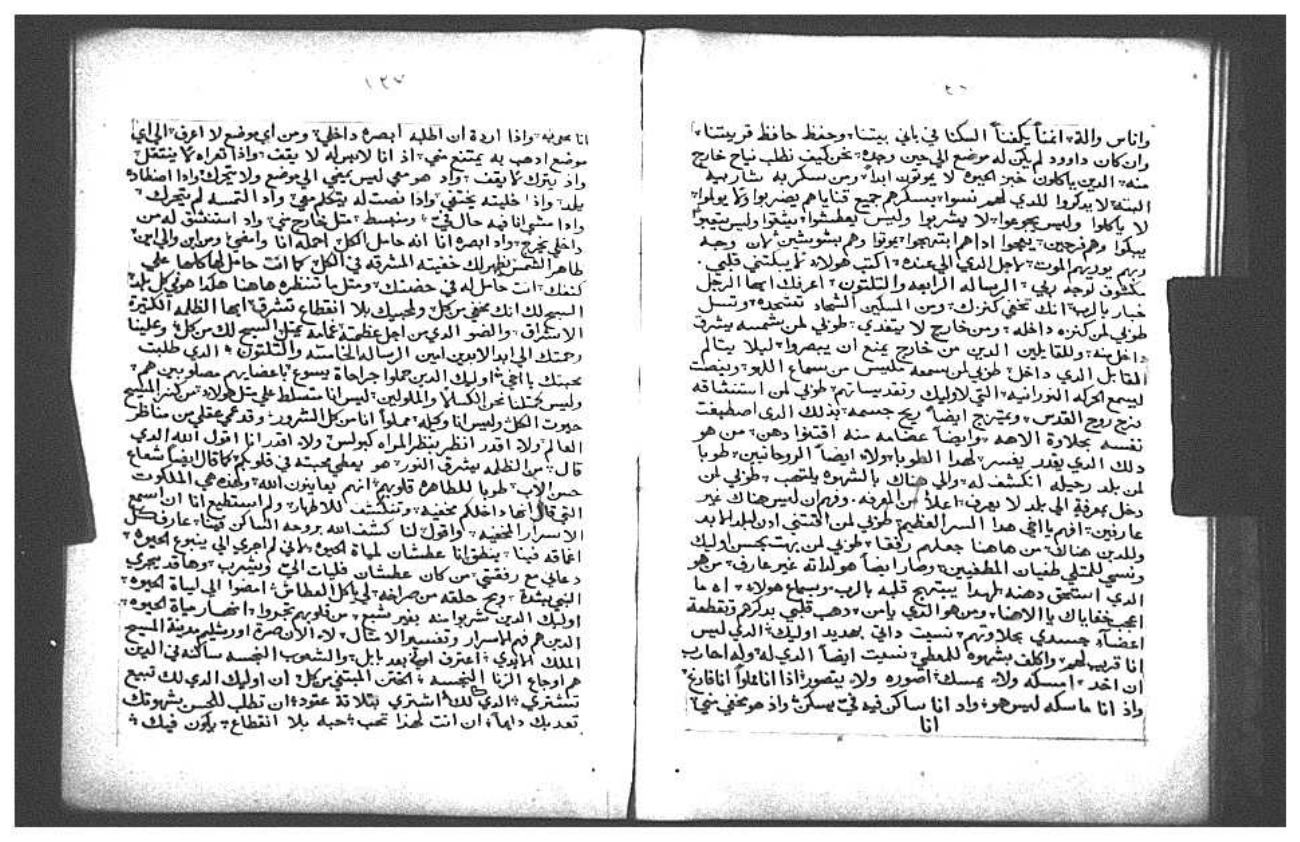 واناس والة امنأ يكفنأ السكنا في باني بيتنا وحفظ حافظ قريتنا
وان كان داوود لم يكن له موضع الي حين وجده نحن كيف نطلب نياح خارج
منه الدين ياكلون خبز الحيوه لا يموتون ابدأ ومن سكر به
البته لا يدكروا للدي لهم نسوا بسكرهم جميع قناياهم يضربوا ولا يولوا
لا ياكلوا وليس يجوعوا لا يشربوا وليس يعطشوا
يبكوا وهم فرحين يموتوا وهم لان وجيه
الموت لاجل الدي الي عنده اكتب هولاء لا يبكتني قلبي
مكشوف لوجه ربي الرساله الرابعه والتلتون اعرفك ايها الرجل
خبار بالرب انك تخفي كنزك ومن المسكين الشحاد تشحده وتسل
طوبي لمن كنزه داخله ومن خارج لا يتغدي طوبي لمن شمسه يشرق
داخل منه وللقابلين الدين من خارج يمنع ان يبصروا ليلا يتالم
المقابل الدي داخل طوبي لمن سمعه من سماع اللهو وينصت
ليسمع الحركه النورانيه التي لاوليك وتقديساتهم طوبي لمن استنشاقه
روح القدس ويمتزج ايضأ ريح جسمه بذلك الدي اصطبغت
نفسه بحلاوة الاهه وايضأ عضامه منه اقتنوا دهن من هو
دلك الدي يقدر يفسر لهدا الطوبا ولاء ايضأ الروحانيين طوبا
لمن بلد رحيله انكشف له والي هناك بالشهوه يلتهب طوبي لمن
دخل بمعرفة الي بلد لا يعرف اعلا من المعرفه وفهم ان ليس هناك غير
عارفين افهم يا اخي هدا السر العظيم طوبي لمن
وللدين هناك من هاهنا جعلهم رفقا طوبي لمن بحسن اوليك
ونسي وصار ايضأ هو لداته غير عارف من هو
الدي استحق دهنه لهدا يبتهج قلبه بالرب وبسماع هولاء اه ما
اعجب خفاياك يا الاهنا ومن هو الدي يامن دهب قلبي بدكرهم
اعضآء جسدي بحلاوتهم نسيت داتي اوليك الدي ليس
انا قريب لهم واكلف بشهوه للمعطي نسيت ايضأ الدي له وله احارب
ان اخد امسكه ولا يمسك اصوره ولا يتصور اذا انا مملوأ انا فارغ
واد انا ماسكه ليس هو واد انا ساكن فيه فيّ يسكن واد هو مخفي مني
انا
١٢٧
واذا اردة ان اطلبه ابصره داخلي ومن اي موضع لا اعرف الي اي
موضع ادهب به يمتنع مني اد انا لابس له لا يقف واذا تعراه لا ينتقل
واد يترك لا يقف واد هو معي ليس يمضي الي موضع ولا يتحرك وادا
يلد واذا خليته يختفي واذا نصت له يتكلم معي واد التمسه لم يتحرك
وادا مشي انا فيه حال فيّ مثل خارج مني واد استنشق له من
داخلي يخرج واد ابصره انا انه حامل الكل احمله انا وامضي ومن اين والي اين
طاهر الشمس يظهر لك خفيته المشرقه في الكل كما انت حامل لها كلها علي
كتفك انت حامل له في حضنك ومثل ما تنظره هاهنا هكدا هو في كل بلد
السبح لك انك مخفي من كل ولمحبيك بلا انقطاع تشرق ايها الظلمه الكتيرة
الاشراق والضو الدي من اجل عظمته يحتمل السبح لك من كل وعلينا
رحمتك الي ابد الابدين امين الرساله الخامسه والتلتون الدي طلبت
محبتك يا اخي اوليك الدين حملوا جراحاة يسوع باعضايهم مصلوبين هم
وليس نحن الكسالا والمملولين ليس انا متسلط علي مثل هولاء من كنز المسيح
حيوت الكل وليس انا وكيله مملوأ انا من كل الشرور وقد عمي عقلي من مناظر
العالم ولا اقدر انظر بنظر المراه كبولس ولا اقدر انا اقول الله الدي
قال من الظلمه يشرق النور هو يعطي محبته في قلوبكم كما قال ايضأ شعاع
حسن الاب طوبا للطاهره قلوبهم انهم يعاينون الله ولهده هي الملكوت
التي قال انها داخلكم مخفيه وتنكشف للاطهار ولم استطيع انا ان اسمع
الاسرار المخفيه واقول لنا كشف الله بروحه الساكن فينا عارف كل
اعماقه فينا ينطق انا عطشان لمياة الحيوه لاني لم اجري الي ينبوع الحيوه
دعاني مع رفقتي من كان عطشان فليات اليّ ويشرب وها قد يجري
النبي بشدة حلقه من صراخه لي ياكل العطاش امضوا الي لمياة الحيوه
اوليك الدين شربوا منه بغير شبع من قلوبهم تجروا انهار مياة الحيوه
الدين هم فهم الاسرار وتفسير الامتال لاء الان صرة اورشليم مدينة المسيح
الملك الابدي اعترف بعد بابل والشعوب النجسه ساكنه في الدين
هم اوجاع الزنا النجسه الختن المبتغي من كل ان اوليك الدي لك تبيع
تشتري الدي لك اشتري بتلاتة عقود ان تطلب للحسن بشهوتك
تعدبك دايما ان انت لهدا تحب حبه بلا انقطاع يكون فيك